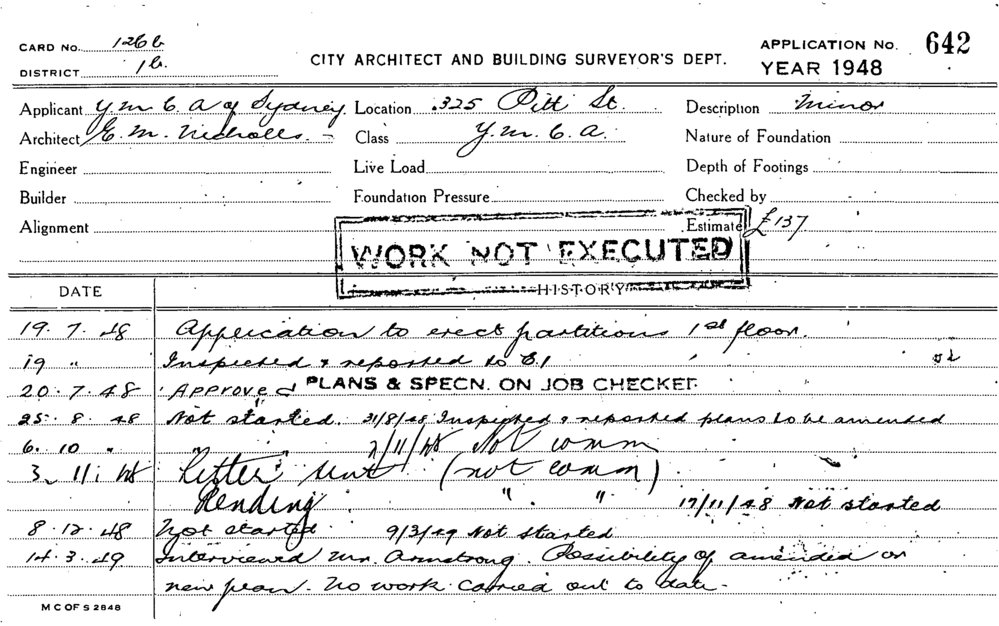 CARD No. 126 b
DISTRICT 1b.
CITY ARCHITECT AND BUILDING SURVEYOR'S DEPT.
APPLICATION No. 642
YEAR 1948
Applicant Y.M.C.A of Sydney. Location 325 Pitt St. Description Minor
Architect E. M. Nicholls. Class Y.M.C.A. Nature of Foundation
Engineer Live Load Depth of Footings
Builder Foundation Pressure Checked by
Alignment Estimate £137
WORK NOT EXECUTED
DATE HISTORY
19. 7. 48 Application to erect partitions 1st floor.
19 " Inspected & reported to
20. 7. 48 Approved PLANS & SPECN. ON JOB CHECKED
25. 8. 48 Not started. 31/8/48 Inspected & reported plans to be amended
6. 10 " " " 2/11/48 Not comm
3. 11. 48 Letter sent (not comm)
Pending " " 17/11/48 Not started
8. 12. 48 Not started 9/3/49 Not Started
14. 3. 49 Interviewed Mr. Armstrong. Possibility of amended or
new plan. No work carried out to date.
M C OF S 2848